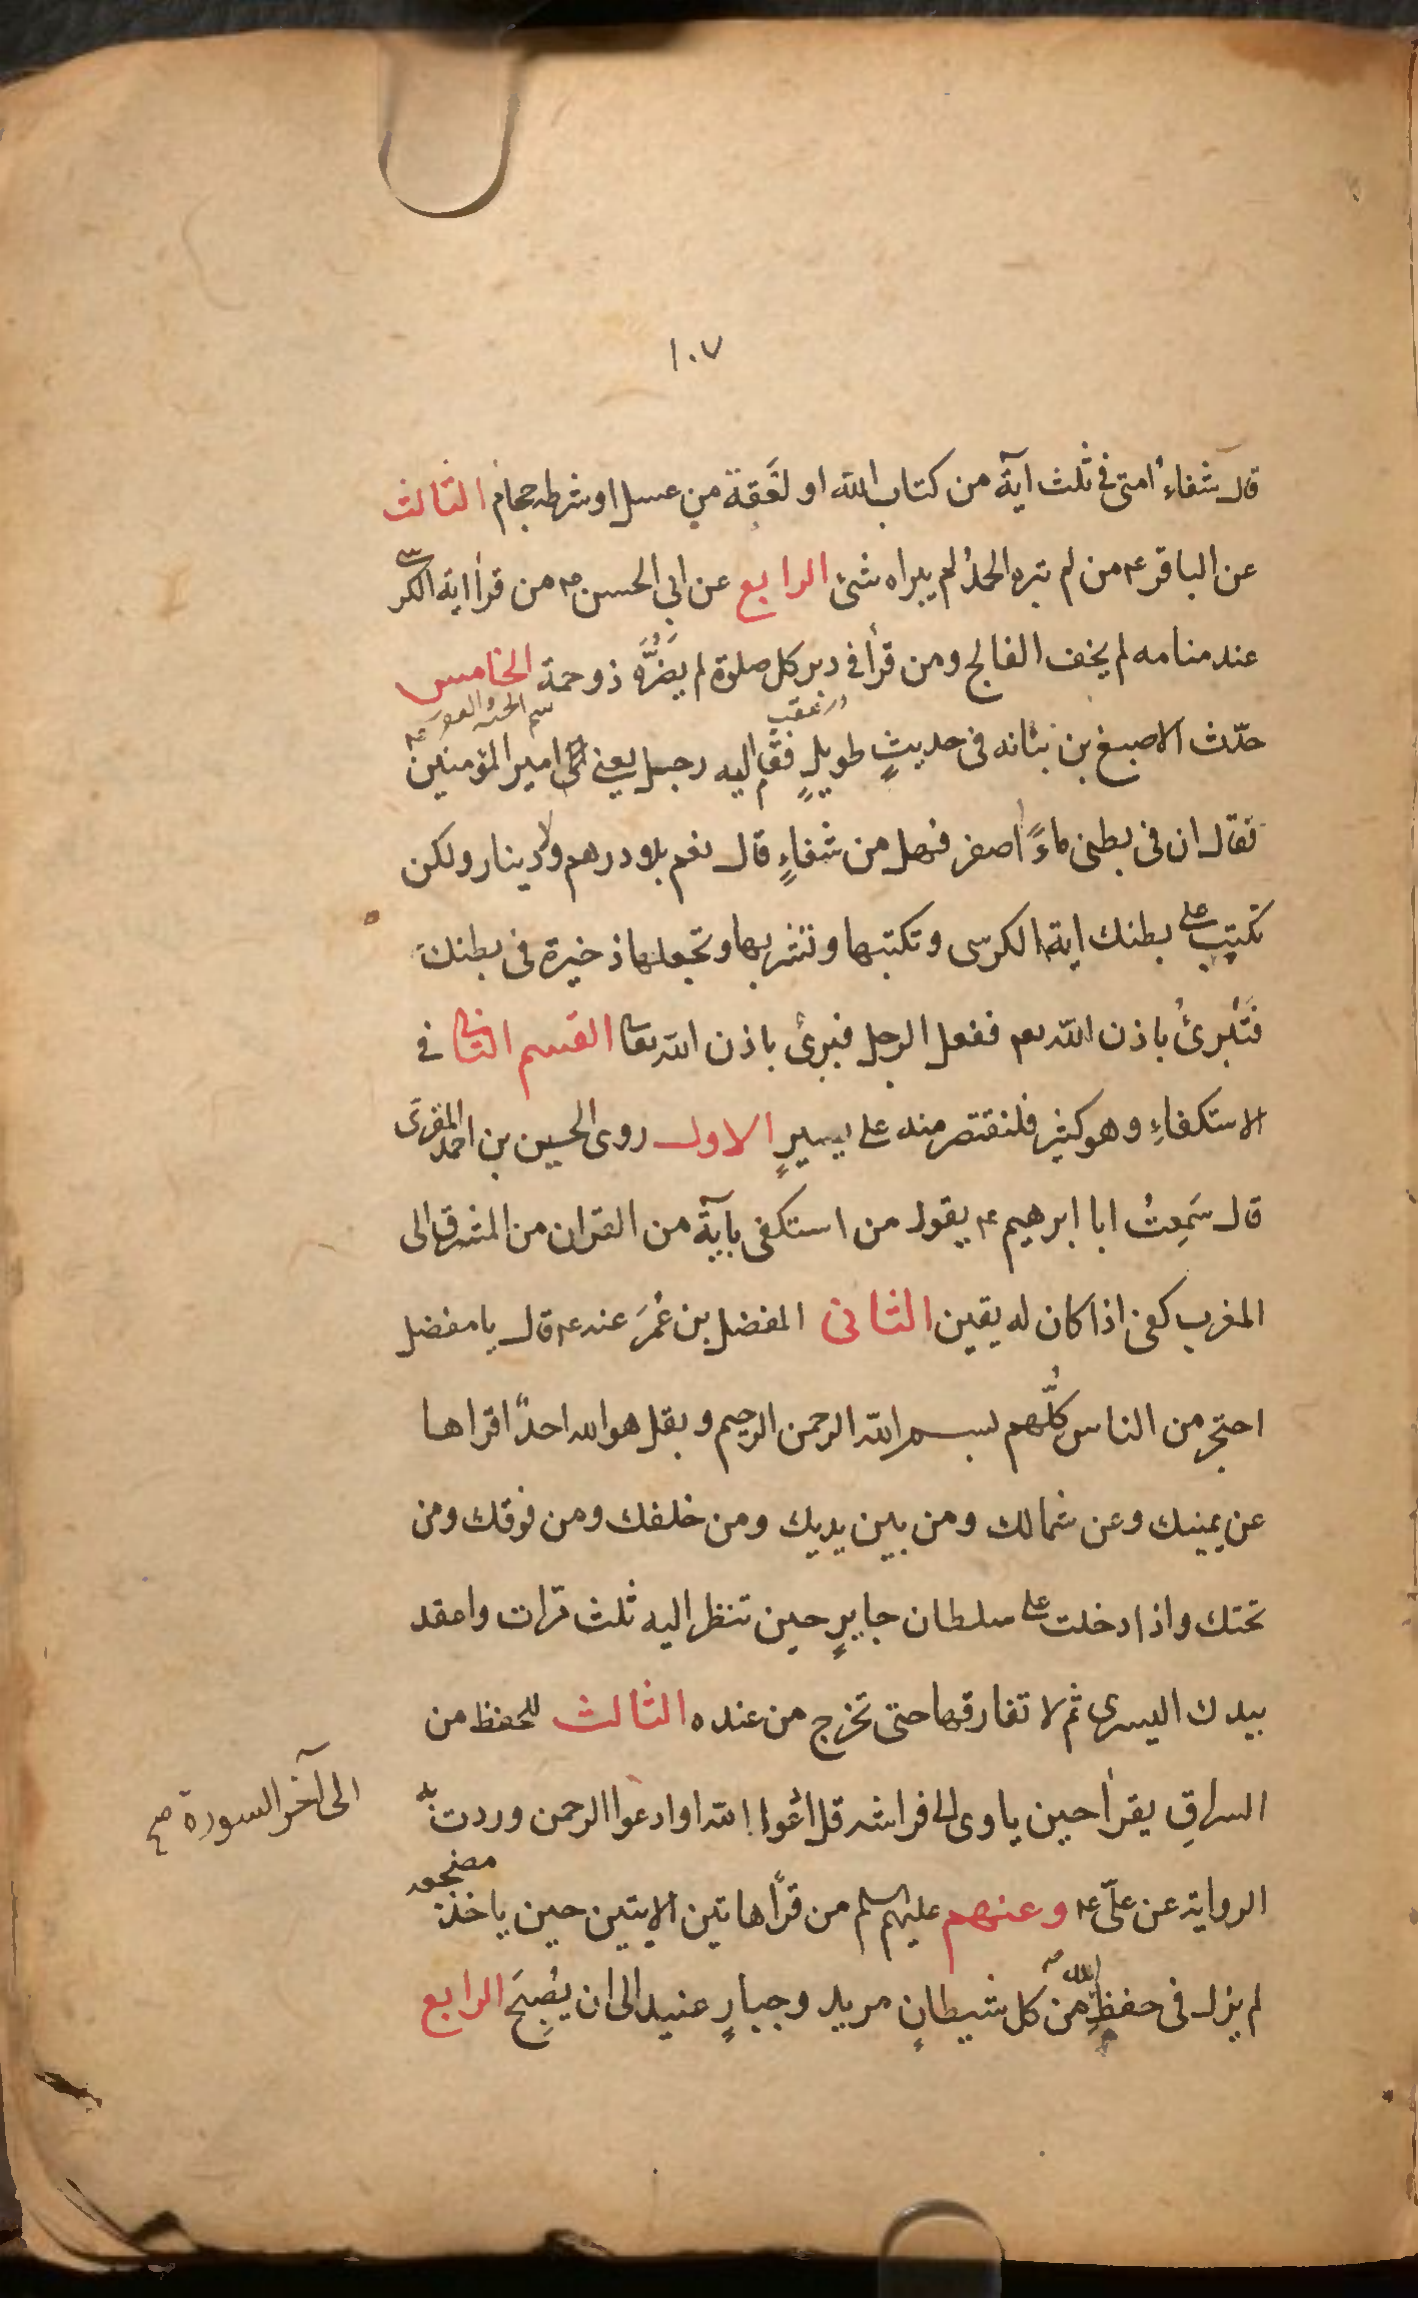 ١٠٧
قال شفاءُ امتى فى ثلث آية من كتاب الله او لَعَقة من عسل او شرطه حجام الثالث
عن الباقر ع من لم يبره الحمدُ لم يبراه شئ الرابع عن ابى الحسن ع من قرأ اية الكرسى
عند منامه لم يخف الفالج ومن قرأ فى دبر كل صلوة لم يَضُرَّه ذو حمة الخامس
سم الحية والعقرب
حدّث الاصبغ بن نباته فى حديثٍ طويلٍ فقام اليه رجل يعنى الى امير المؤمنين ع
فقال ان فى بطنى ماءً اصفر فهل من شفاءٍ قال نعم بلا درهم ولا دينار ولكن
تكتب على بطنك اية الكرسى وتكتبها وتشربها وتجعلها ذخيرة فى بطنك
فَتَبرئُ باذن الله تعم ففعل الرجل فبرئ باذن الله تعالى القسم الثانى فى
الاستكفاءِ وهو كثير فلنقتصر منه على يسيرٍ الاول روى الحسين بن احمد المقرى
قال سَمِعتُ ابا ابرهيم ع يقول من استكفى بآية من القران من المشرق الى
المغرب كفى اذا كان له يقين الثانى المفضل بن عُمَر عنه ع قال يا مفضل
احتجز من الناس كُلّهم ببسم الله الرحمن الرحيم وبقل هو الله احدٌ اقراها
عن يمينك وعن شمالك ومن بين يديك ومن خلفك ومن فوقك ومن
تحتك واذا دخلت على سلطان جايرٍ حين تنظر اليه ثلث مرّات واعقد
بيدك اليسرى ثم لا تفارقها حتى تخرج من عنده الثالث للحفظ من
السراقِ يقرأ حين ياوى الى فراشه قل ادعوا الله او ادعوا الرحمن وردت به
الى آخر السورة صح
الرواية عن علىّ ع وعنهم عليهم السلم من قرأ هاتين الايتين حين ياخذ مضجعه
لم يزل فى حفظِ الله من كل شيطانٍ مريد وجبارٍ عنيد الى ان يُصبِحَ الرابع